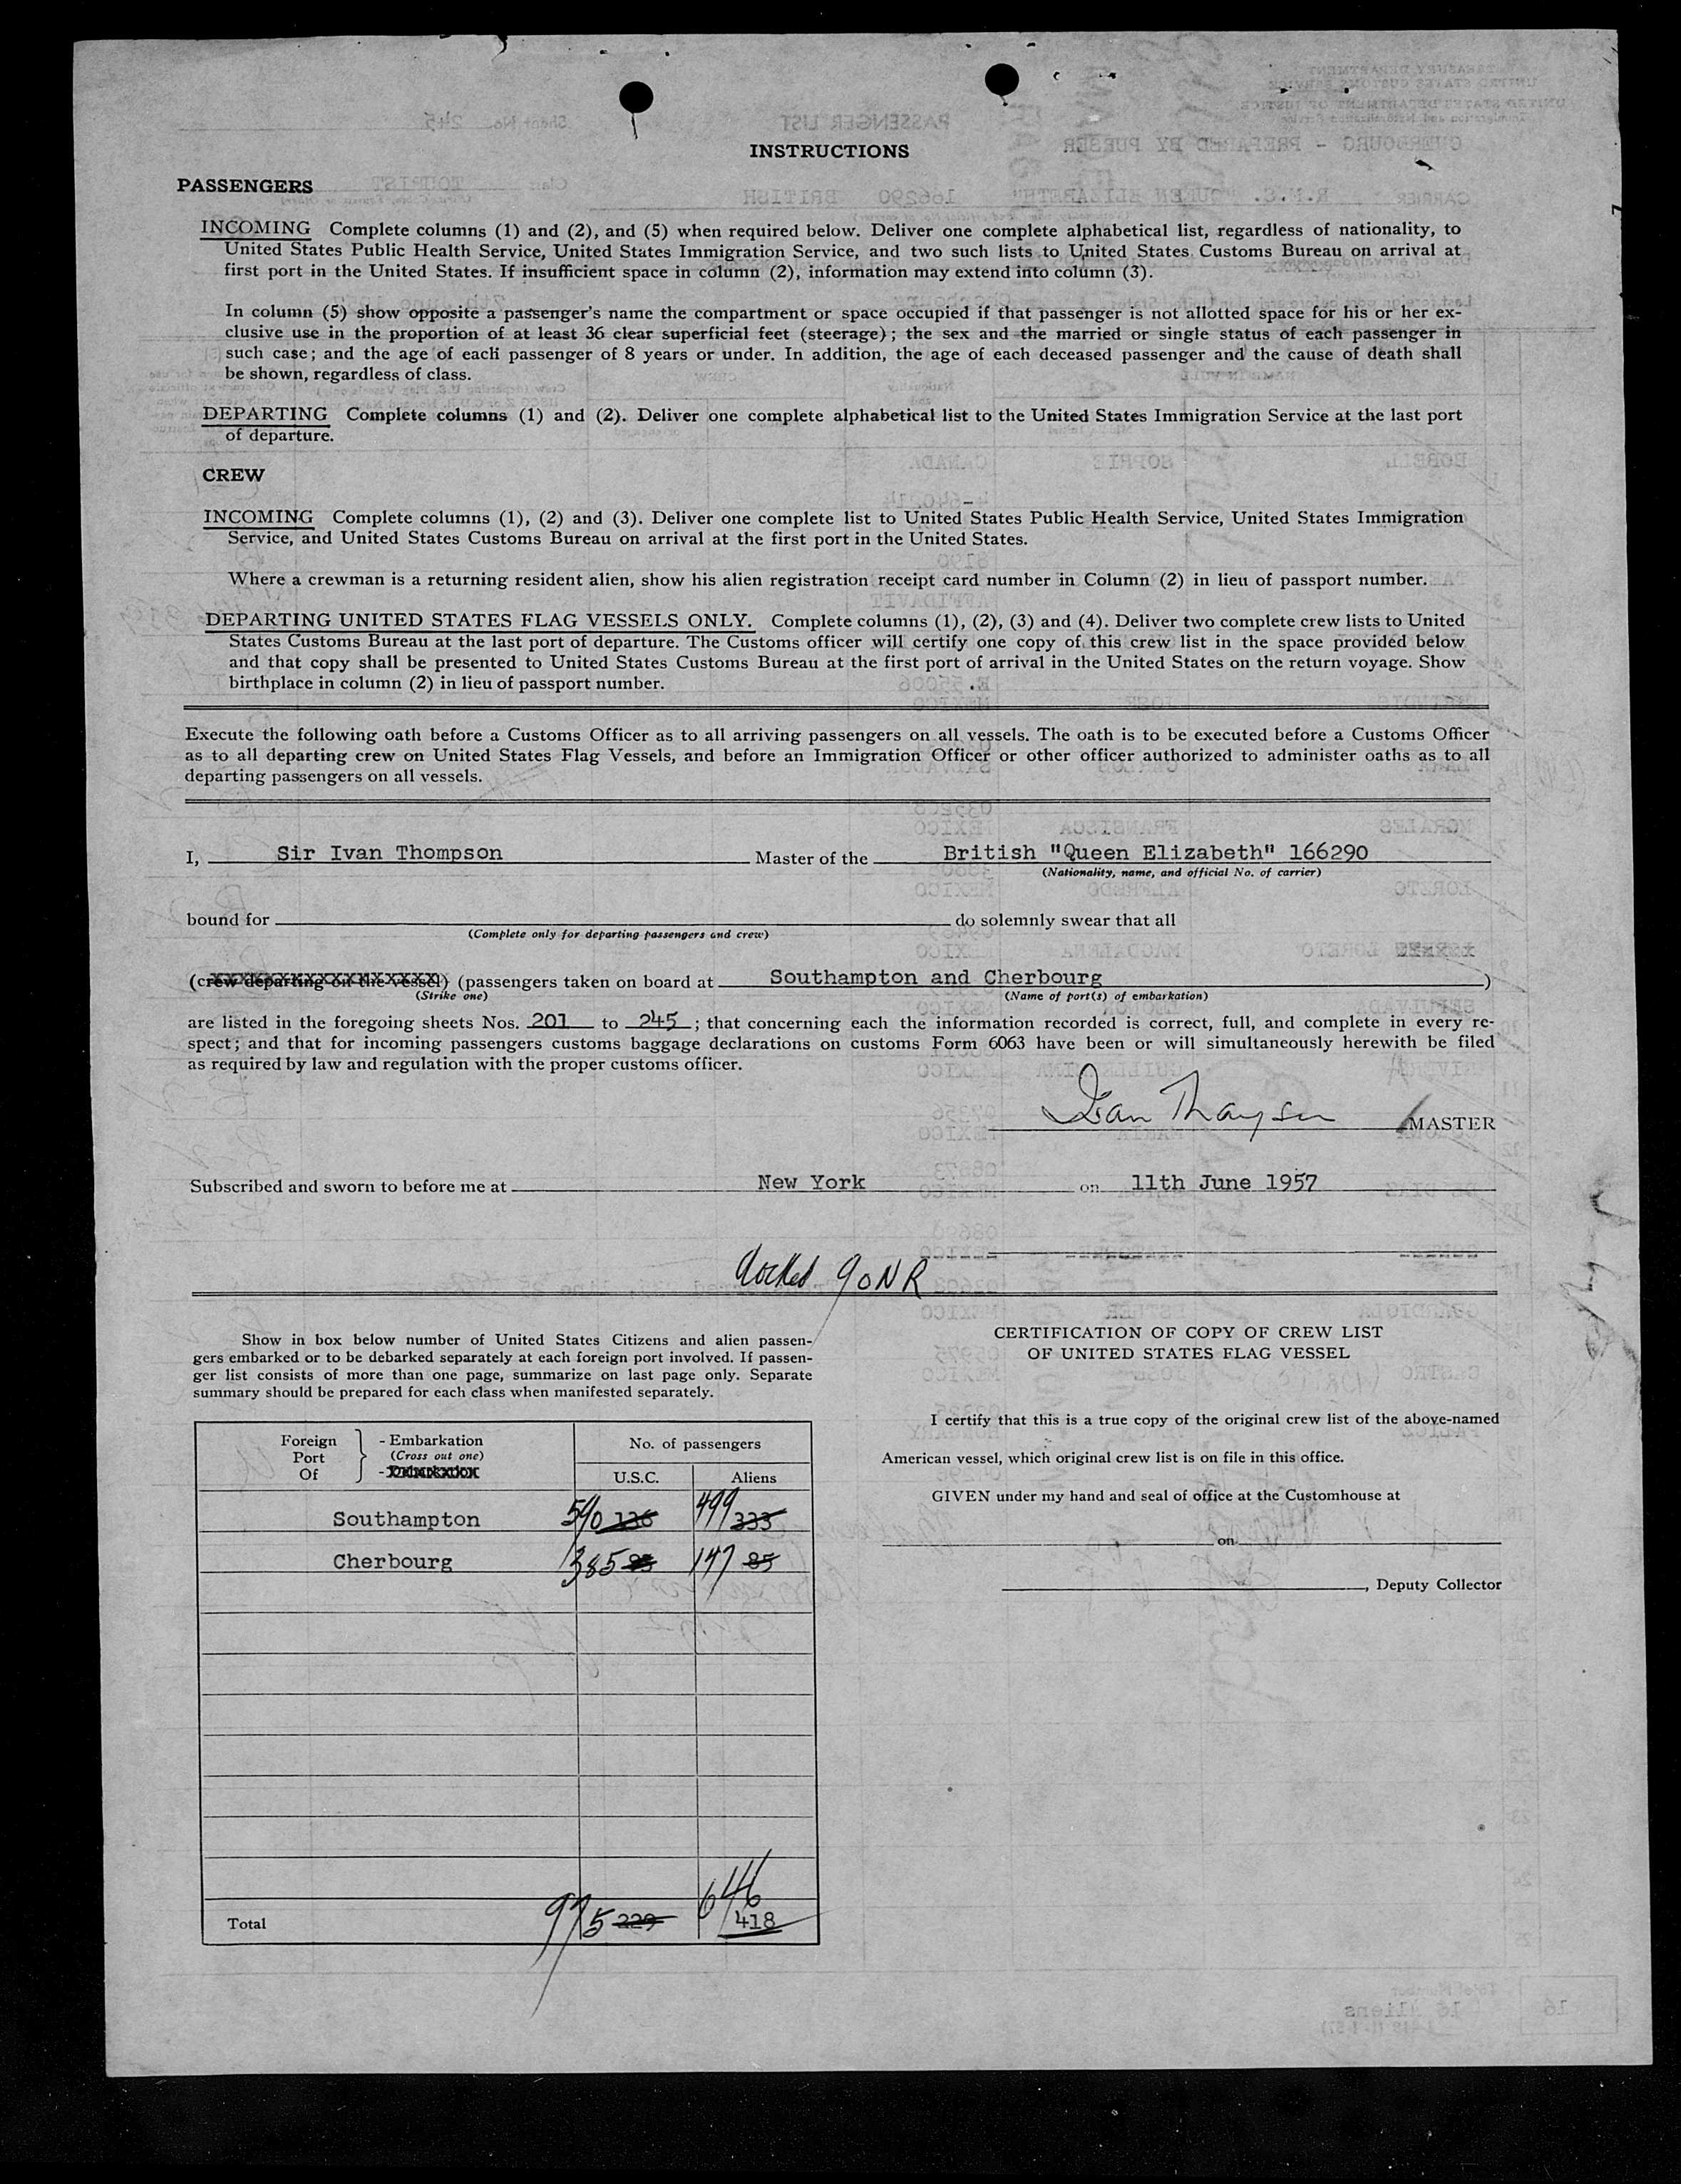 INSTRUCTIONS
PASSENGERS
INCOMING Complete columns (1) and (2), and (5) when required below. Deliver one complete alphabetical list, regardless of nationality, to
United States Public Health Service, United States Immigration Service, and two such lists to United States Customs Bureau on arrival at
first port in the United States. If insufficient space in column (2), information may extend into column (3).
In column (5) show opposite a passenger's name the compartment or space occupied if that passenger is not allotted space for his or her ex-
clusive use in the proportion of at least 36 clear superficial feet (steerage); the sex and the married or single status of each passenger in
such case; and the age of each passenger of 8 years or under. In addition, the age of each deceased passenger and the cause of death shall
be shown, regardless of class.
DEPARTING Complete columns (1) and (2). Deliver one complete alphabetical list to the United States Immigration Service at the last port
of departure.
CREW
INCOMING Complete columns (1), (2) and (3). Deliver one complete list to United States Public Health Service, United States Immigration
Service, and United States Customs Bureau on arrival at the first port in the United States.
Where a crewman is a returning resident alien, show his alien registration receipt card number in Column (2) in lieu of passport number.
DEPARTING UNITED STATES FLAG VESSELS ONLY. Complete columns (1), (2), (3) and (4). Deliver two complete crew lists to United
States Customs Bureau at the last port of departure. The Customs officer will certify one copy of this crew list in the space provided below
and that copy shall be presented to United States Customs Bureau at the first port of arrival in the United States on the return voyage. Show
birthplace in column (2) in lieu of passport number.
Execute the following oath before a Customs Officer as to all arriving passengers on all vessels. The oath is to be executed before a Customs Officer
as to all departing crew on United States Flag Vessels, and before an Immigration Officer or other officer authorized to administer oaths as to all
departing passengers on all vessels.
I, Sir Ivan Thompson Master of the British "Queen Elizabeth" 166290
(Nationality, name, and official No. of carrier)
bound for do solemnly swear that all
(Complete only for departing passengers and crew)
(crew departing on the vessel) (passengers taken on board at Southampton and Cherbourg )
(Strike one) (Name of port(s) of embarkation)
are listed in the foregoing sheets Nos. 201 to 245; that concerning each the information recorded is correct, full, and complete in every re-
spect; and that for incoming passengers customs baggage declarations on customs Form 6063 have been or will simultaneously herewith be filed
as required by law and regulation with the proper customs officer.
Ivan Thompson MASTER
Subscribed and sworn to before me at New York on 11th June 1957
docked 90NR
Show in box below number of United States Citizens and alien passen-
gers embarked or to be debarked separately at each foreign port involved. If passen-
ger list consists of more than one page, summarize on last page only. Separate
summary should be prepared for each class when manifested separately.
Foreign Port Of } - Embarkation
(Cross out one)
No. of passengers
U.S.C. Aliens
Southampton 590 136 499 333
Cherbourg 385 93 147 85
Total 975 229 646 418
CERTIFICATION OF COPY OF CREW LIST
OF UNITED STATES FLAG VESSEL
I certify that this is a true copy of the original crew list of the above-named
American vessel, which original crew list is on file in this office.
GIVEN under my hand and seal of office at the Customhouse at
on
, Deputy Collector